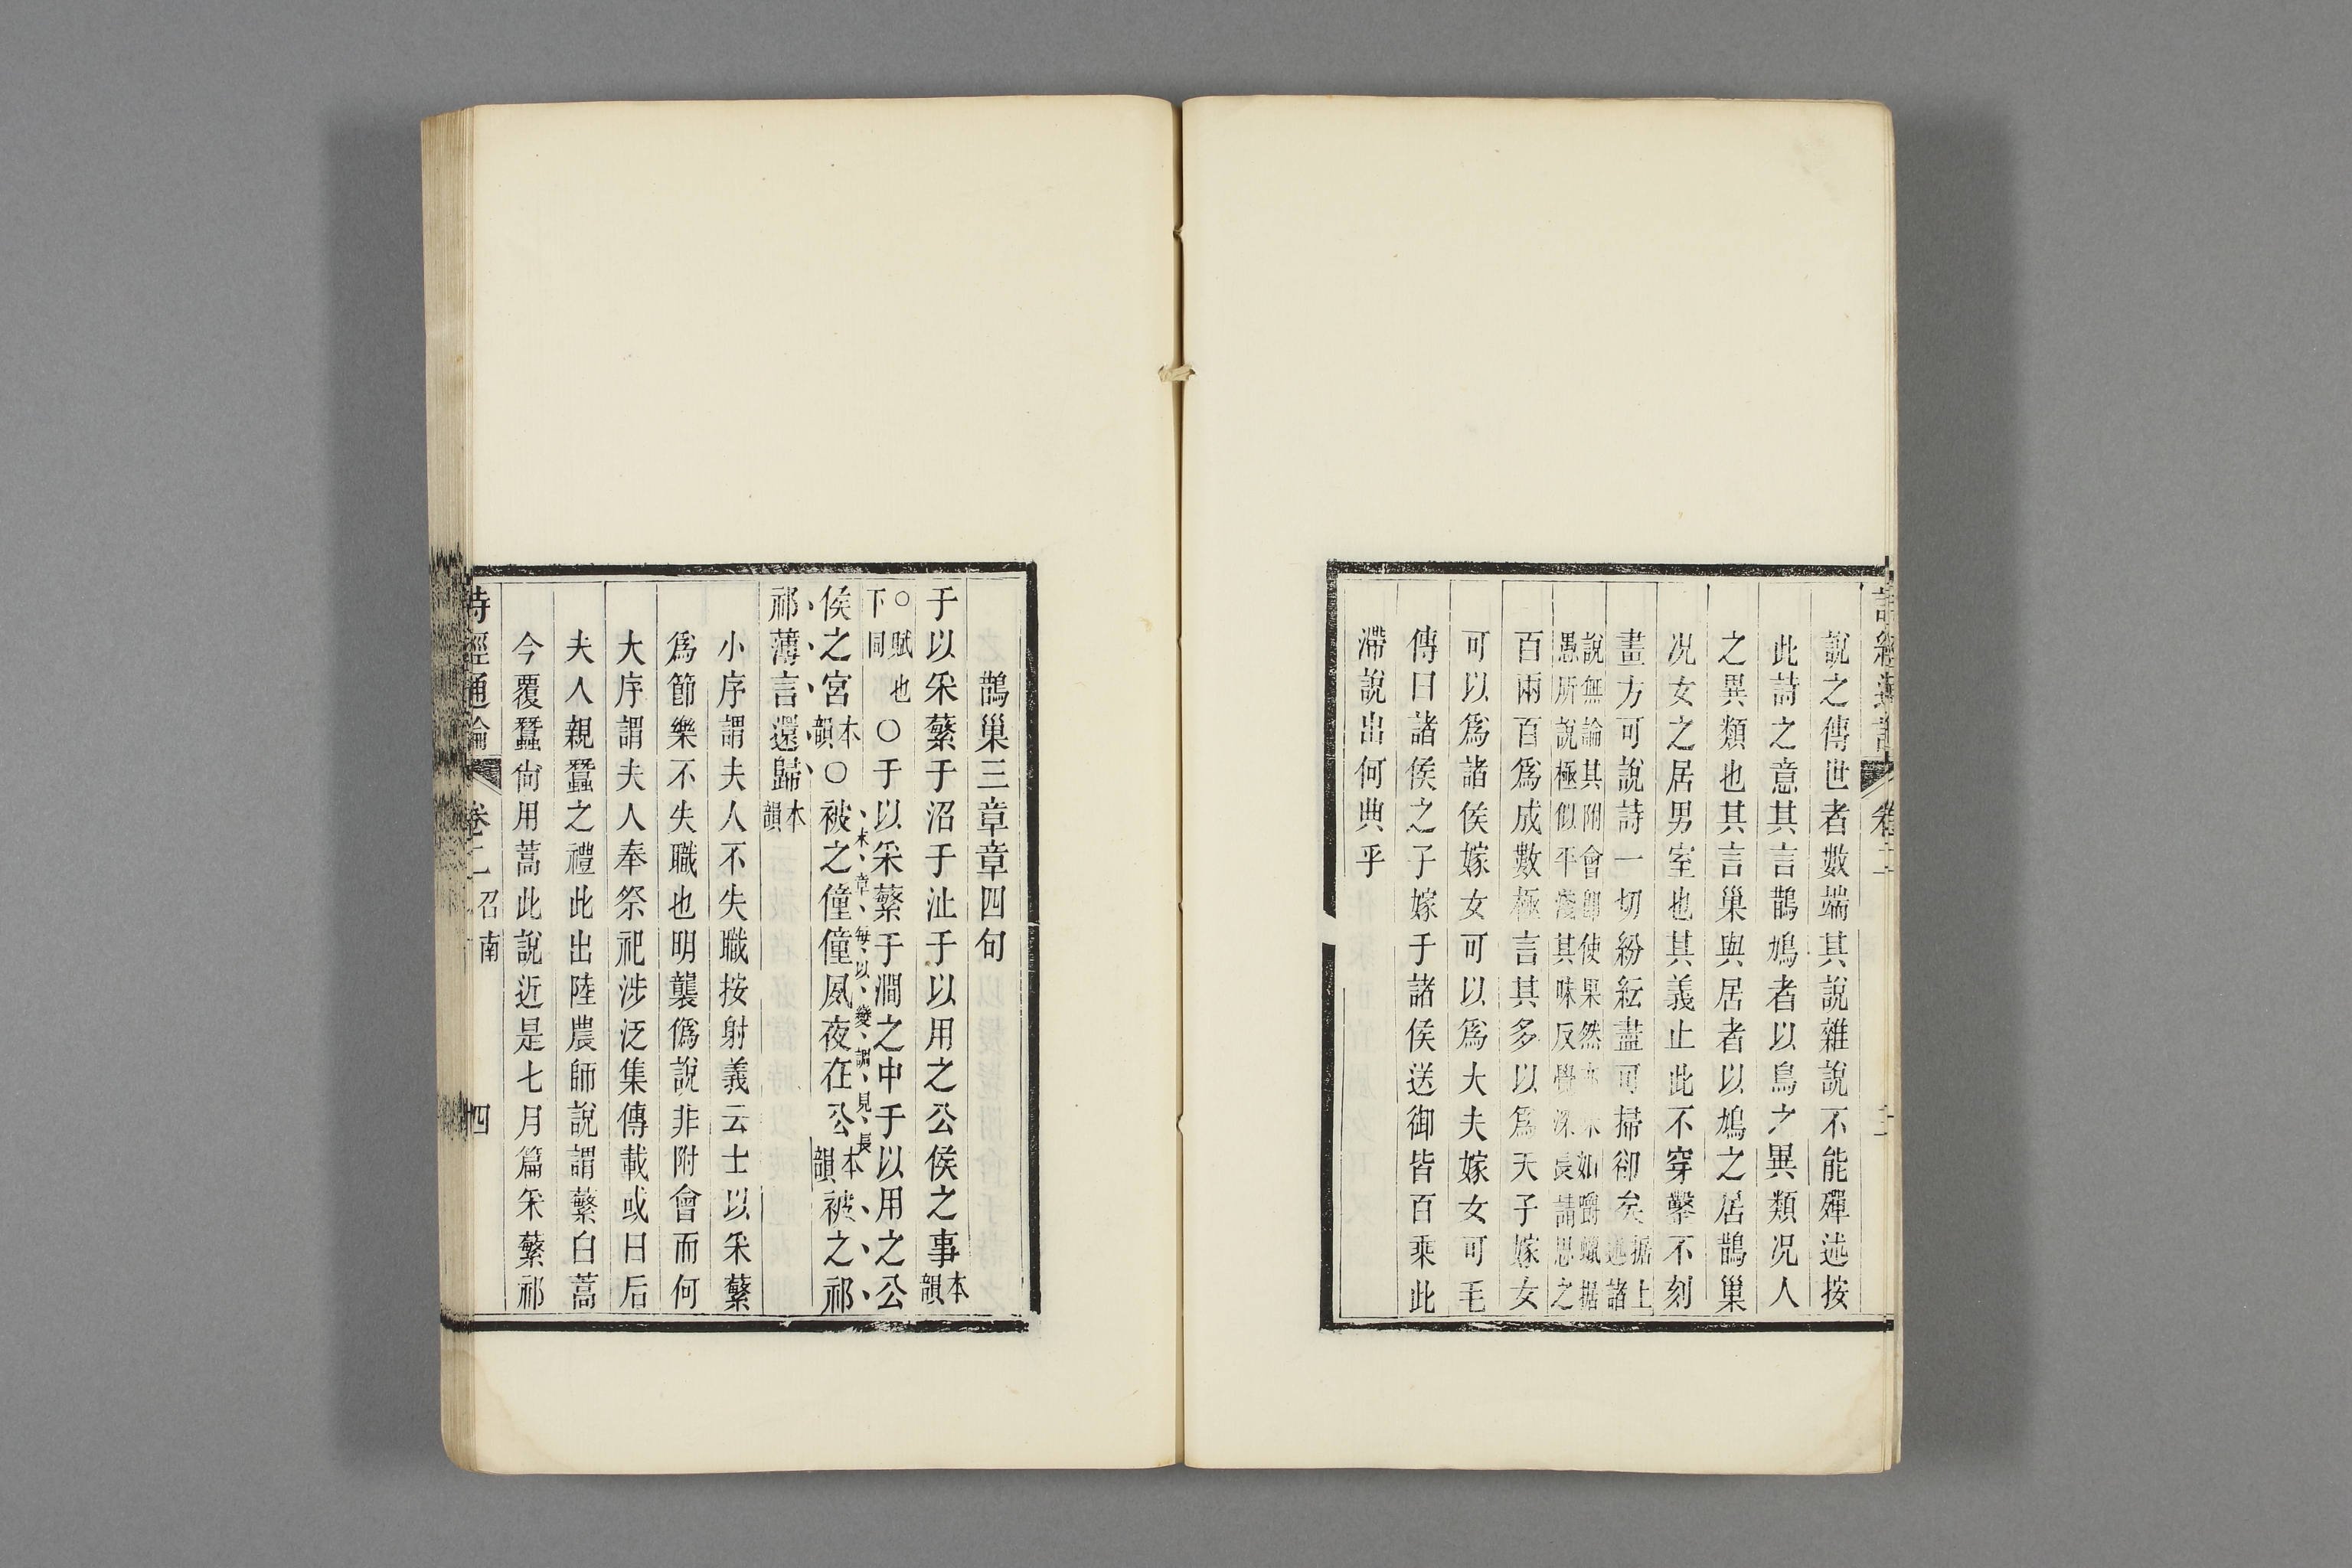 詩經通論
卷二
說之傳世者數端其說雜說不能殫述按
此詩之意其言鵲鳩者以鳥之異類况人
之異類也其言巢與居者以鳩之居鵲巢
况女之居男室也其義止此不穿鑿不刻
畫方可說詩一切紛紜盡可掃卻矣據上述諸
說無論其附會卽使果然亦味如嚼蠟据
愚所說極似平淺其味反覺深長請思之
百兩百爲成數極言其多以爲天子嫁女
可以爲諸侯嫁女可以爲大夫嫁女可毛
傳曰諸侯之子嫁于諸侯送御皆百乘此
滯說出何典乎
鵲巢三章章四句
于以采蘩于沼于沚于以用之公侯之事本韻
○賦也下同○于以采蘩于澗之中于以用之公
侯之宮本韻○被之僮僮夙夜在公本韻被之祁
末章每以變調見長
祁薄言還歸本韻
小序謂夫人不失職按射義云士以采蘩
爲節樂不失職也明襲僞說非附會而何
大序謂夫人奉祭祀涉泛集傳載或曰后
夫人親蠶之禮此出陸農師說謂蘩白蒿
今覆蠶尙用蒿此說近是七月篇采蘩祁
詩經通論
卷二 召南
四